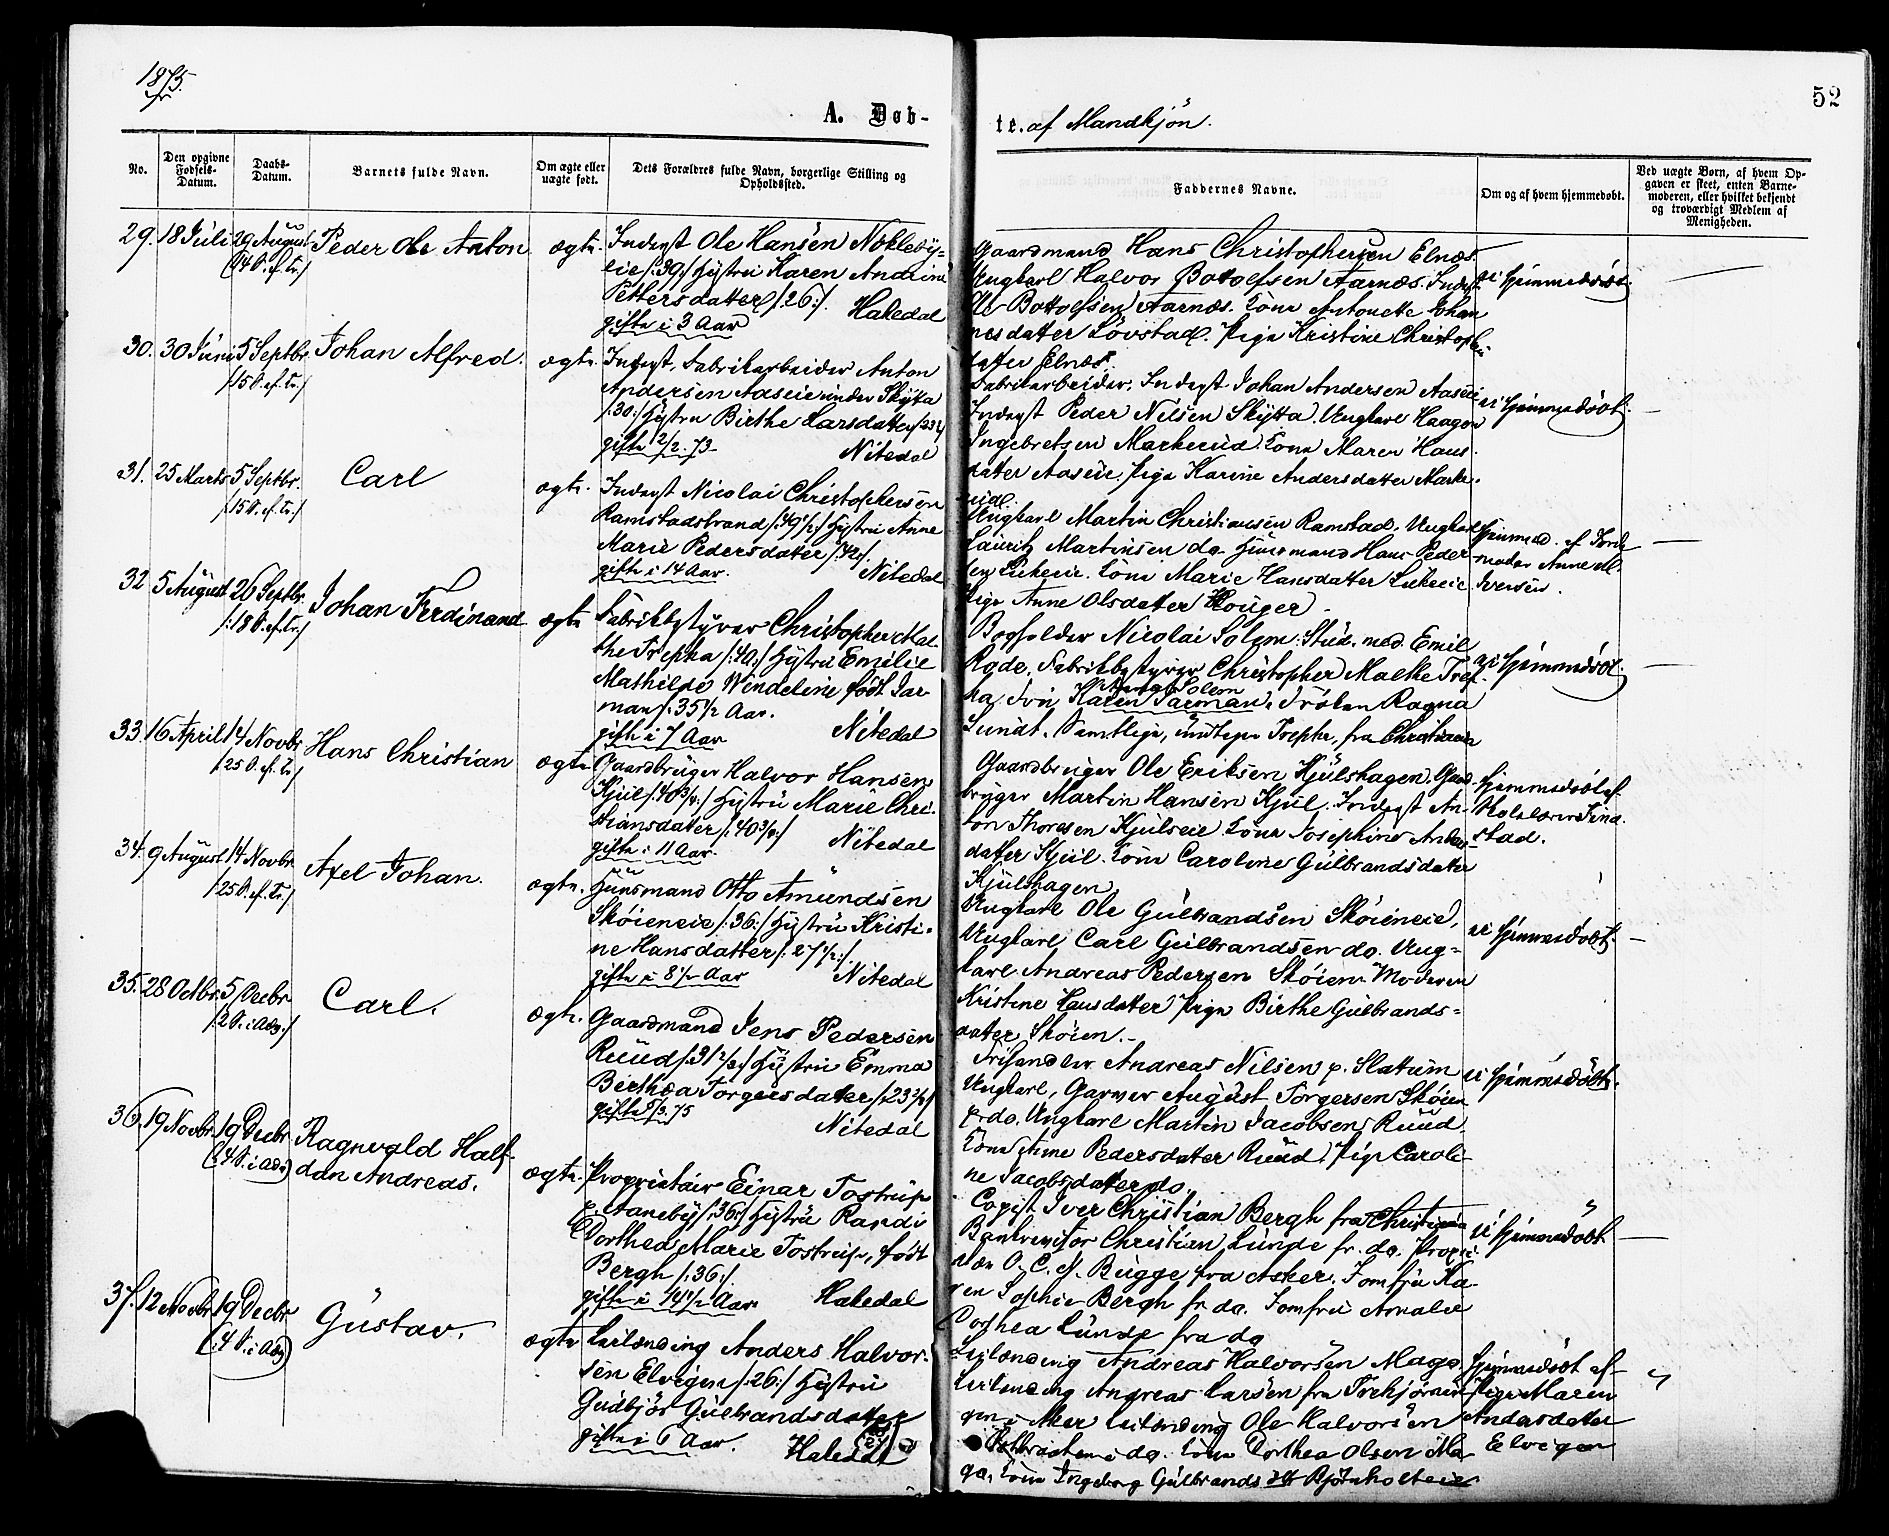 1875.
52
A. Døb-
te. af Mandkjön.
No.
Den opgivne Fødsels-Datum.
Daabs-Datum.
Barnets fulde Navn.
Om ægte eller uægte født.
Dets Forældres fulde Navn, borgerlige Stilling og Opholdssted.
Faddernes Navne.
Om og af hvem hjemmedøbt.
Ved uægte Børn, af hvem Opgaven er skeet, enten Barnemoderen, eller hvilket bekjendt og troværdigt Medlem af Menigheden.
29. 18 Juli 29 August Peder Ole Anton ægte.
/14 S. ef. Tr./
Inderst Ole Hansen Nökleby-
eie /:39:/ Hustru Karen Andrine
Pettersdatter /:26:/.
gifte i 3 Aar Hakedal
Gaardmand Hans Christophersen Elnæs.
Ungkarl Halvor Bottolfsen Aarnæs. Inderst
Ole Bottolfsen Aarnæs. Kone Antonette Johan
nesdatter Lövstad. Pige Kristine Christoph
datter Elnæs.
ei hjemmedöbt.
30. 30 Juni 5 Septbr. Johan Alfred. ægte.
/15 S. ef. Tr./
Inderst, Fabrikarbeider Anton
Andersen Aaseie under Skytta
/:30:/ Hustru Birthe Larsdatter /:23:/
gifte 2/2.73 Nitedal
Fabrikarbeider, Inderst Johan Andersen Aaseie
Inderst Peder Nilsen Skytta. Ungkarl Haagon
Ingebretsen Markerud. Kone Maren Hans
datter Aaseie. Pige Karine Andersdatter Marke-
rud.
ei hjemmedöbt.
31. 25 Marts 5 Septbr. Carl ægte.
/15 S. ef. Tr./
Inderst Nicolai Christophersen
Ramstadstrand /:49 1/2:/ Hustru Anne
Marie Pedersdatter /:42:/.
gifte i 14 Aar. Nitedal
Ungkarl Martin Christiansen Ramstad. Ungkarl
Lauritz Martinsen do. Huusmand Hans Peder
sen Lukeeie. Kone Marie Hansdatter Lukeeie
Pige Anne Olsdatter Houger.
hjemmed. af Jorde
moder Anne M.
Iversen.
32 5 August 26 Septbr. Johan Ferdinand ægte
/:18 S. ef. Tr./
Fabrikbestyrer Christopher Mal-
the Trepka /:40:/ Hustru Emilie
Mathilde Windeline födt Jar-
man /:35 1/2 Aar.
gifte i 7 Aar Nitedal
Bogholder Nicolai Solem. Stud. med. Emil
Rode. Fabrikbestyrer Christopher Malthe Trep-
ka. Frü Solem
Karen Jarman, Fröken Ragna
Lundt. Samtlige, undtagen Trepka, fra Christiania
ei hjemmedöbt.
33. 16 April 14 Novbr. Hans Christian ægte
/25 S. ef. Tr/
Gaardbruger Halvor Hansen
Kjul /:40 3/4:/ Hustru Marie Chri-
stiansdatter /:40 3/4:/
gifte i 11 Aar. Nitedal
Gaardbruger Ole Eriksen Kjulshagen, Gaard-
bruger Martin Hansen Kjul. Inderst An-
ton Thoresen Kjulseie. Kone Josephine Anders
datter Kjul. Kone Caroline Gulbrandsdatter
Kjulshagen.
hjemmedöbt af
Skolelærer Find-
stad.
34. 9 August 14 Novbr. Axel Johan. ægte.
/25 S. ef. Tr./
Huusmand Otto Amundsen
Skøieneie /:36:/ Hustru Kristi-
ne Hansdatter /:27 1/2:/.
gifte i 8 1/2 Aar Nitedal
Ungkarl Ole Gulbrandsen Skøieneie,
Ungkarl Carl Gulbrandsen do. Ung-
karl Andreas Pedersen Skøien. Moderen
Kristine Hansdatter Pige Birthe Gulbrands-
datter Skøien.
ei hjemmedöbt.
35. 28 Octbr. 5 Decbr. Carl. ægte.
/:2 S. i Adv./
Gaardmand Jens Pedersen
Ruud /:31 1/2:/ Hustru Emma
Birthea Torgersdatter /:23 1/2:/
gifte 5/3.75 Nitedal
Andreas Nilsen p. Slatum
Ungkarl, Garver August Torgersen Skøien
p. do. Ungkarl Martin Jacobsen Ruud.
Kone Pedersdatter Ruud. Pige Caroli-
ne Jacobsdatter do.
ei hjemmedöbt.
36. 19 Novbr. 19 Decbr Ragnvald Half-
dan Andreas. ægte.
/:4 S. i Adv/
Proprietair Einar Tostrup
p. Aaneby /:36:/ Hustru Randi
Dorthea Marie Tostrup, födt
Bergh /:36:/.
gifte i 14 1/2 Aar Hakedal
Copist Iver Christian Bergh fra Christiania
Bankrevisor Christian Lunde fr. do. Propri-
etær O. C. N. Bugge fra Asker. Jomfru Ka-
ren Sophie Bergh fr do. Jomfru Amalie
Dorthea Lunde fra do
ei hjemmedöbt
37. 12 Novbr 19 Decbr Gustav. ægte
/:4 S. i Adv/
Leilænding Anders Halvor-
sen Elvigen /:26:/ Hustru
Gudbjör Gulbrandsdatter
gifte i 1 Aar. Hakedal
Leilænding Andreas Halvorsen Mago.
Leilænding Andreas Larsen fra
Leilænding Ole Halvorsen
do. Kone Dorthea Olsen Ma-
go, Kone Ingeborg Gulbrandsdtr Bjørnholteie
hjemmedöbt af
Pige Maren
Andersdatter
Elvigen